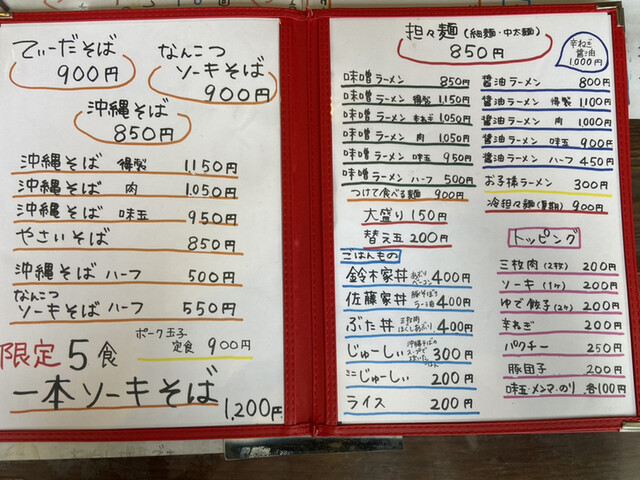 てぃーだそば
900円
なんこつ
ソーキそば
900円
沖縄そば
850円
沖縄そば 特製 1,150円
沖縄そば 肉 1,050円
沖縄そば 味玉 950円
やさいそば 850円
沖縄そば ハーフ 500円
なんこつ
ソーキそば ハーフ 550円
ポーク玉子
定食 900円
限定5食
一本ソーキそば
1,200円
担々麺(細麺・中太麺)
850円
辛ねぎ
醤油
1,000円
味噌ラーメン 850円
味噌ラーメン 特製 1,150円
味噌ラーメン 辛ねぎ 1,050円
味噌ラーメン 肉 1,050円
味噌ラーメン 味玉 950円
味噌ラーメン ハーフ 500円
つけて食べる麺 900円
大盛り 150円
替え玉 200円
醤油ラーメン 800円
醤油ラーメン 特製 1,100円
醤油ラーメン 肉 1,000円
醤油ラーメン 味玉 900円
醤油ラーメン ハーフ 450円
お子様ラーメン 300円
冷担々麺(夏期) 900円
ごはんもの
鈴木家丼 あぶりベーコン 400円
佐藤家丼 豚そぼろラー油 400円
ぶた丼 三枚肉 400円
じゅーしぃ 沖縄そばのスープで炊いたごはん 300円
ミニじゅーしぃ 200円
ライス 200円
トッピング
三枚肉(2枚) 200円
ソーキ(1ケ) 200円
ゆで餃子(2ケ) 200円
辛ねぎ 200円
パクチー 250円
豚団子 200円
味玉・メンマ・のり 各100円